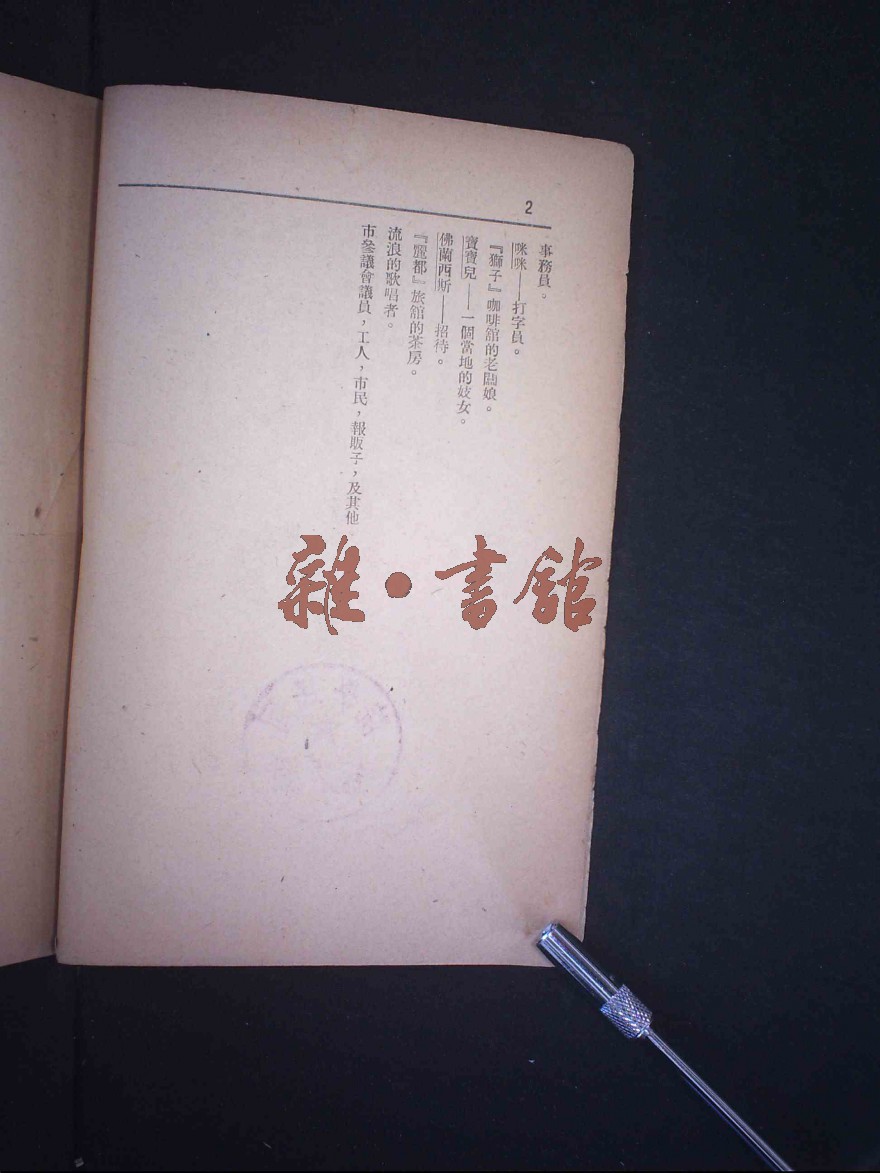 2
事務員。
咪咪——打字員。
『獅子』咖啡舘的老闆娘。
寶寶兒——一個當地的妓女。
佛蘭西斯——招待。
『麗都』旅舘的茶房。
流浪的歌唱者。
市參議會議員，工人，市民，報販子，及其他
雜·書舘